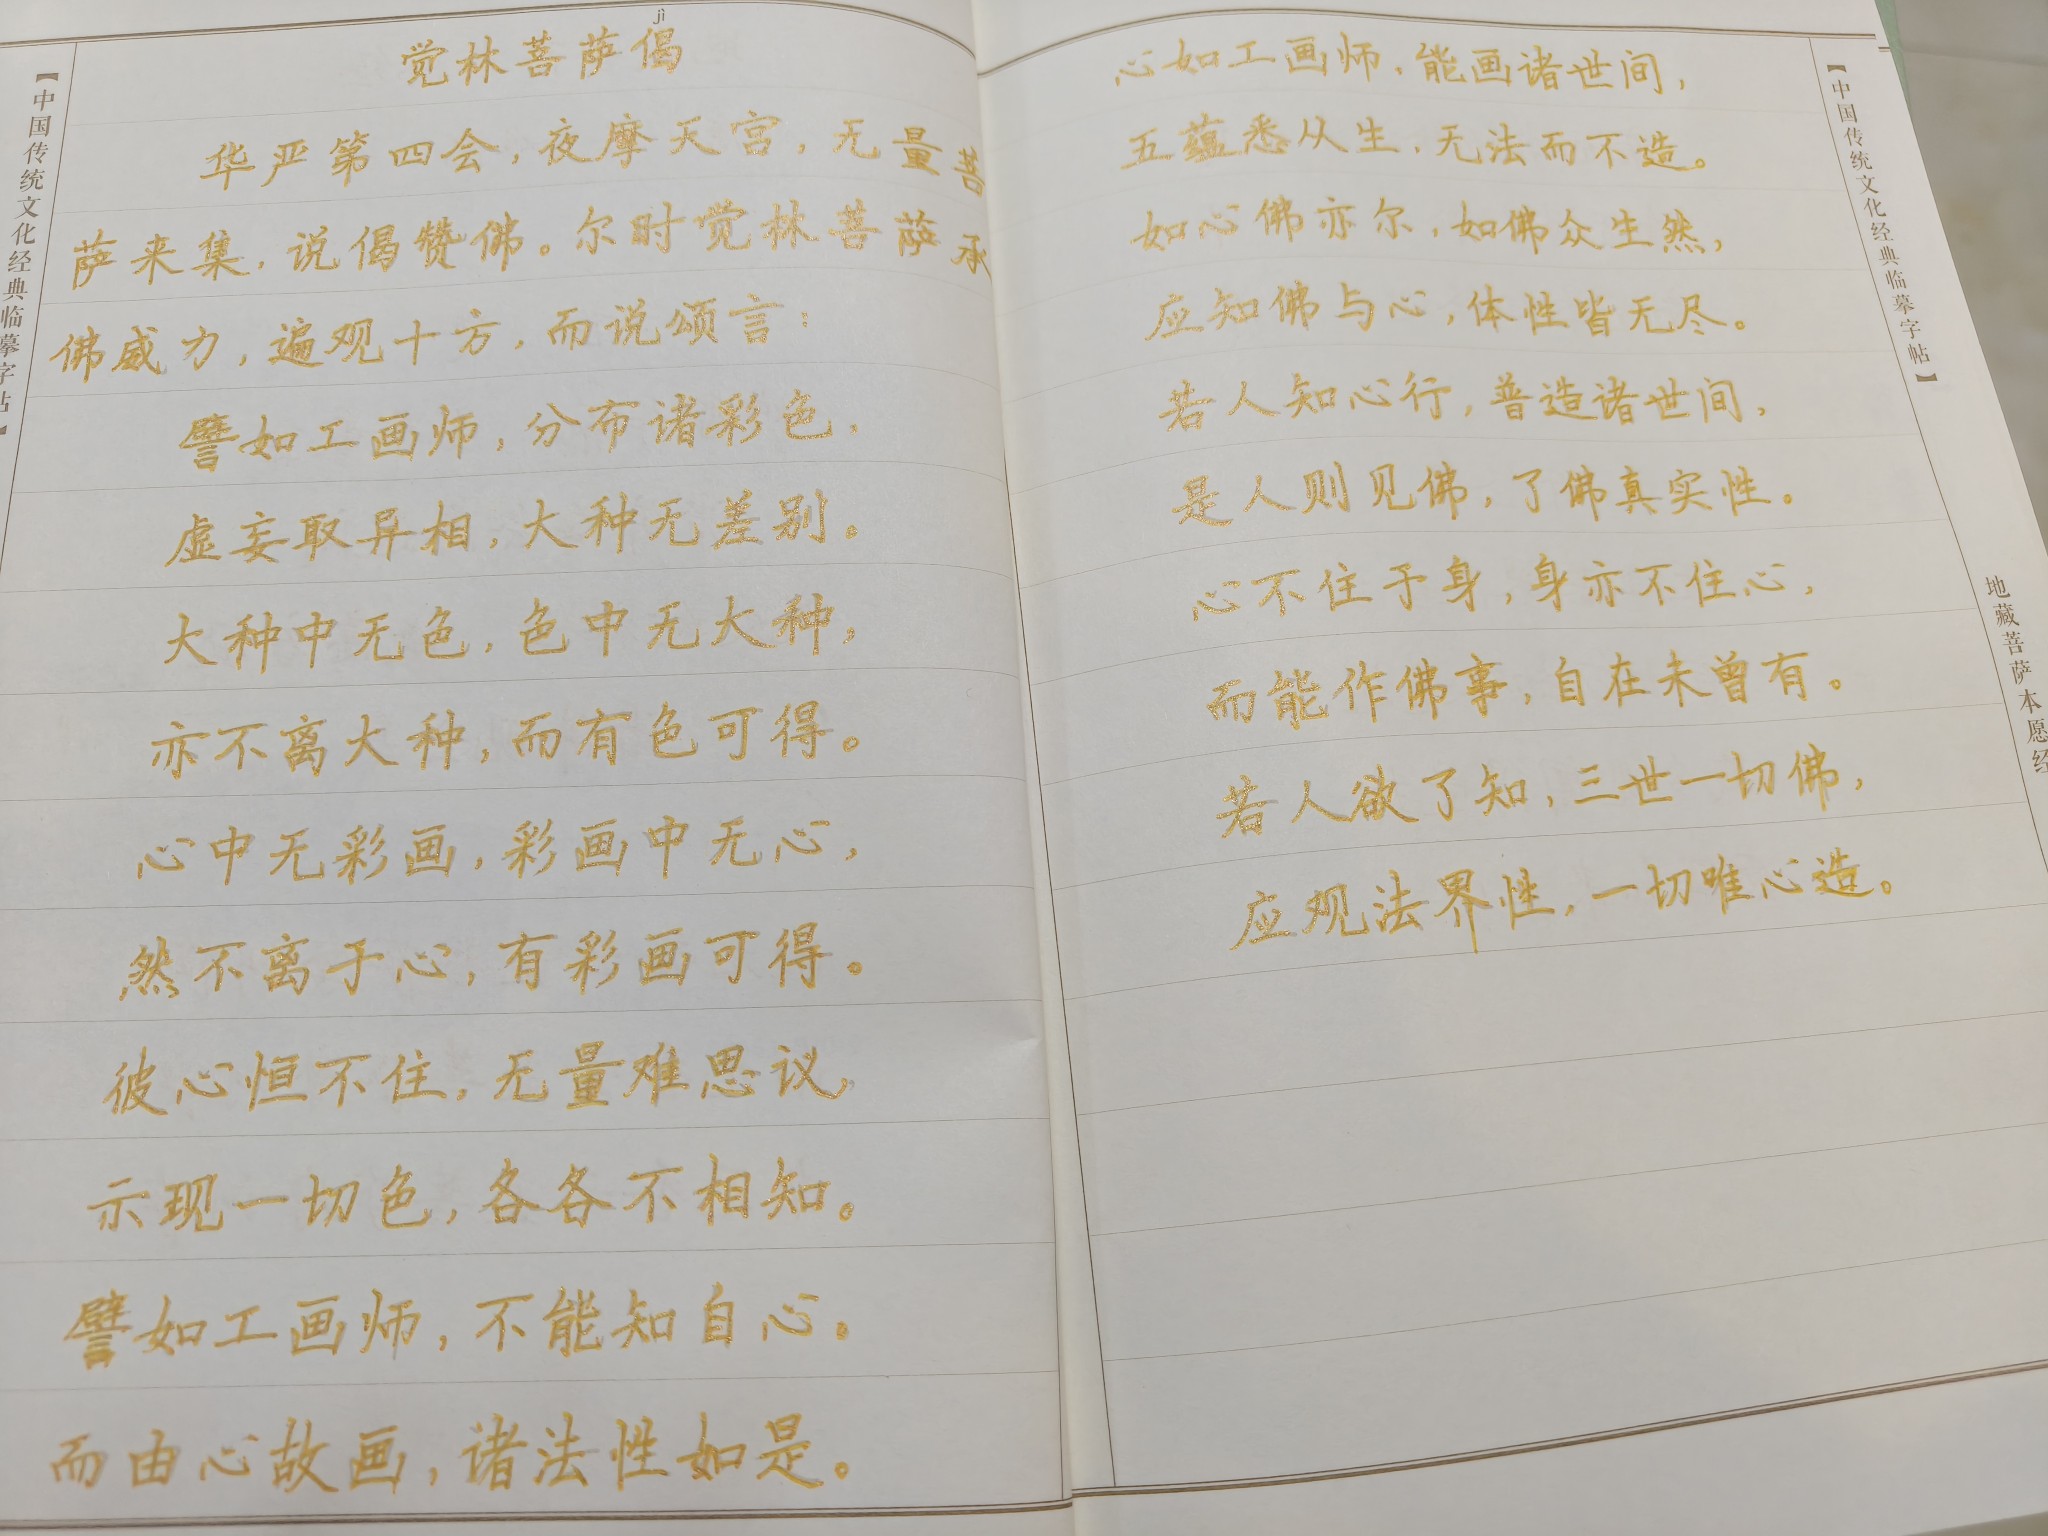 【中国传统文化经典临摹字帖】
jì
觉林菩萨偈
华严第四会，夜摩天宫，无量菩
萨来集，说偈赞佛。尔时觉林菩萨承
佛威力，遍观十方，而说颂言：
譬如工画师，分布诸彩色，
虚妄取异相，大种无差别。
大种中无色，色中无大种，
亦不离大种，而有色可得。
心中无彩画，彩画中无心，
然不离于心，有彩画可得。
彼心恒不住，无量难思议，
示现一切色，各各不相知。
譬如工画师，不能知自心。
而由心故画，诸法性如是。
心如工画师，能画诸世间，
五蕴悉从生，无法而不造。
如心佛亦尔，如佛众生然，
应知佛与心，体性皆无尽。
若人知心行，普造诸世间，
是人则见佛，了佛真实性。
心不住于身，身亦不住心，
而能作佛事，自在未曾有。
若人欲了知，三世一切佛，
应观法界性，一切唯心造。
【中国传统文化经典临摹字帖】
地藏菩萨本愿经